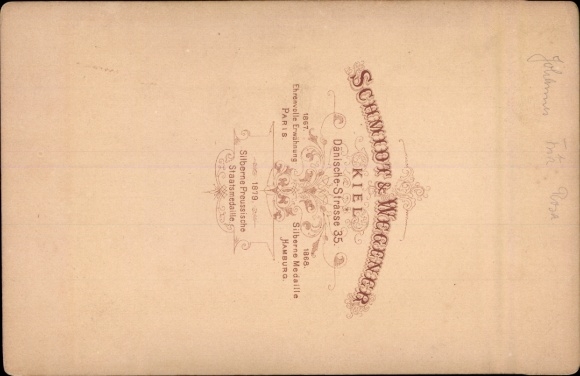 Johannes
SCHMIDT & WEGENER
KIEL
Dänische-Strasse 35.
1867.
Ehrenvolle Erwähnung
PARIS
1868.
Silberne Medaille
HAMBURG.
1879.
Silberne Preussische
Staatsmedaille.